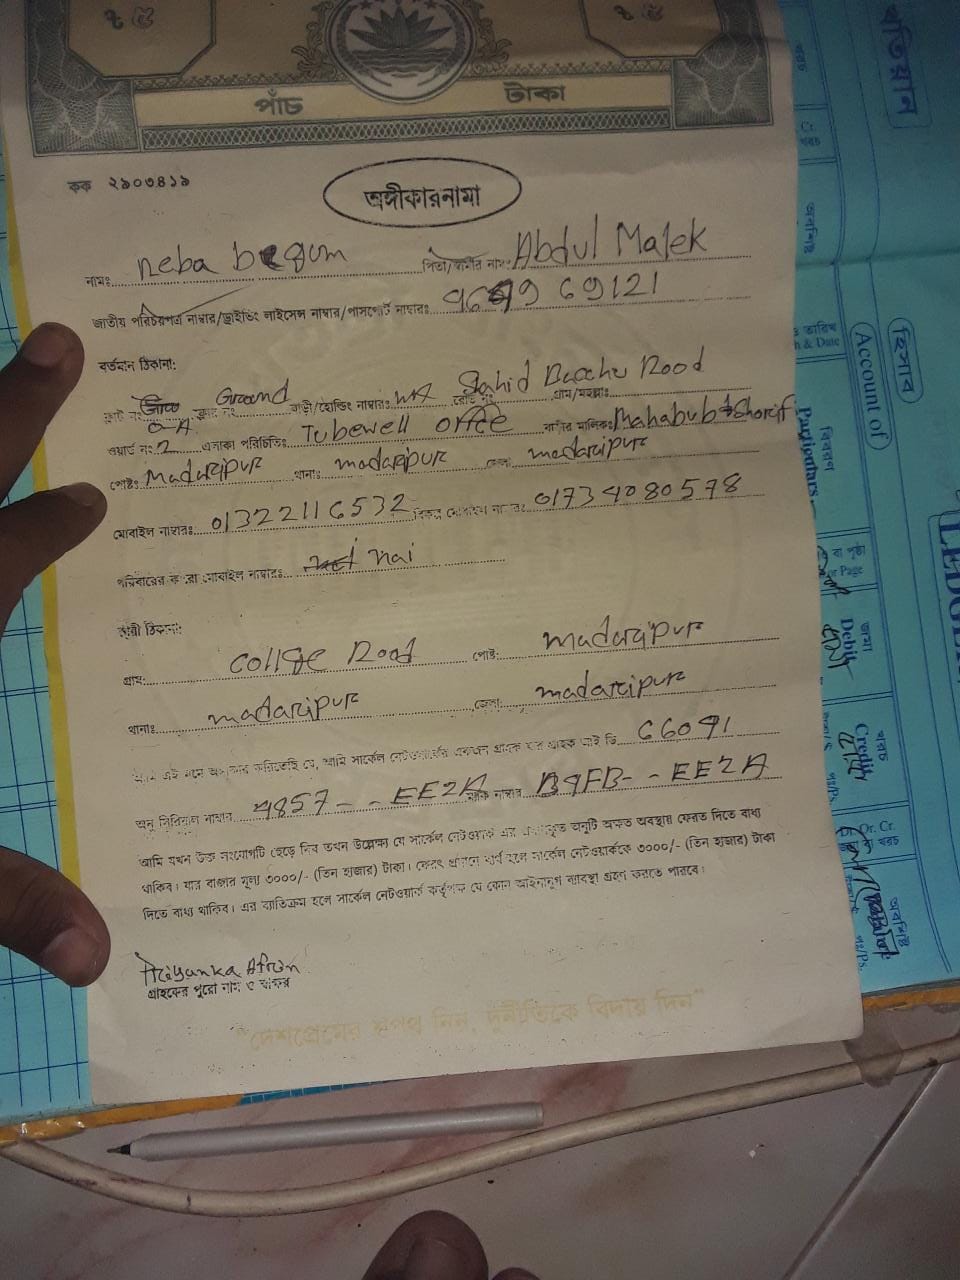 ৳ ৫ ৳ ৫
পাঁচ টাকা
কক ২৯০৩৪১৯
অঙ্গীকারনামা
নামঃ neba begum পিতা/স্বামীর নাম: Abdul Malek
জাতীয় পরিচয়পত্র নাম্বার/ড্রাইভিং লাইসেন্স নাম্বার/পাসপোর্ট নাম্বারঃ 69121
বর্তমান ঠিকানা:
Ground বাড়ী/হোল্ডিং নাম্বার: NA Sahid Bacchu Rood
0-A
ওয়ার্ড নং: 2 এলাকা পরিচিতি: Tubewell office বাড়ীর মালিক: Mahabub + Shorif
পোষ্টঃ Madaripur থানাঃ madaripur জেলা: madaripur
মোবাইল নাম্বারঃ 01322116532 বিকল্প মোবাইল নাম্বারঃ 01734080578
পরিবারের মোবাইল নাম্বারঃ nai
স্থায়ী ঠিকানা:
গ্রামঃ collge Rood পোষ্ট: madaripur
থানাঃ madaripur জেলা: madaripur
আমি এই মর্মে অঙ্গীকার করিতেছি যে, আমি সার্কেল নেটওয়ার্কের একজন গ্রাহক যার গ্রাহক আই ডি 66091
অনু সিরিয়াল নাম্বার 4857 - - EE2A ম্যাক নাম্বার B4FB - - EE2A
আমি যখন উক্ত সংযোগটি ছেড়ে দিব তখন উল্লেক্ষ্য যে সার্কেল নেটওয়ার্ক এর অনুটি অক্ষত অবস্থায় ফেরত দিতে বাধ্য
থাকিব। যার বাজার মূল্য ৩০০০/- (তিন হাজার) টাকা। ফেরৎ প্রদানে ব্যর্থ হলে সার্কেল নেটওয়ার্ককে ৩০০০/- (তিন হাজার) টাকা
দিতে বাধ্য থাকিব। এর ব্যতিক্রম হলে সার্কেল নেটওয়ার্ক কর্তৃপক্ষ যে কোন আইনানুগ ব্যবস্থা গ্রহণ করতে পারবে।
Priyanka Afrin
গ্রাহকের পুরো নাম ও স্বাক্ষর
"দেশপ্রেমের শপথ নিন, দুর্নীতিকে বিদায় দিন"
খতিয়ান
হিসাব
Account of
LEDGER
ও তারিখ
& Date
বিবরণ
Particulars
বা পৃষ্ঠা
Page
জমা
Debit
খরচ
Credit
Dr. Cr.
অবশিষ্ট